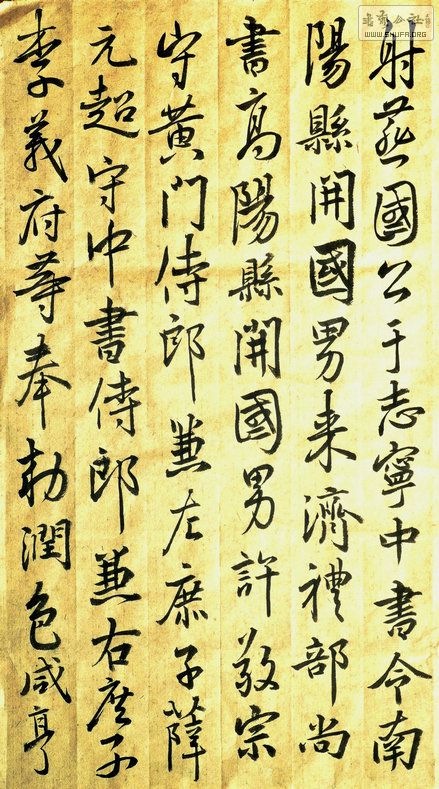 射燕國公于志寧中書令南
陽縣開國男来濟禮部尚
書高陽縣開國男許敬宗
守黃門侍郎兼左庶子薛
元超守中書侍郎兼右庶子
李義府等奉勅潤色咸亨
WWW.SHUFA.ORG